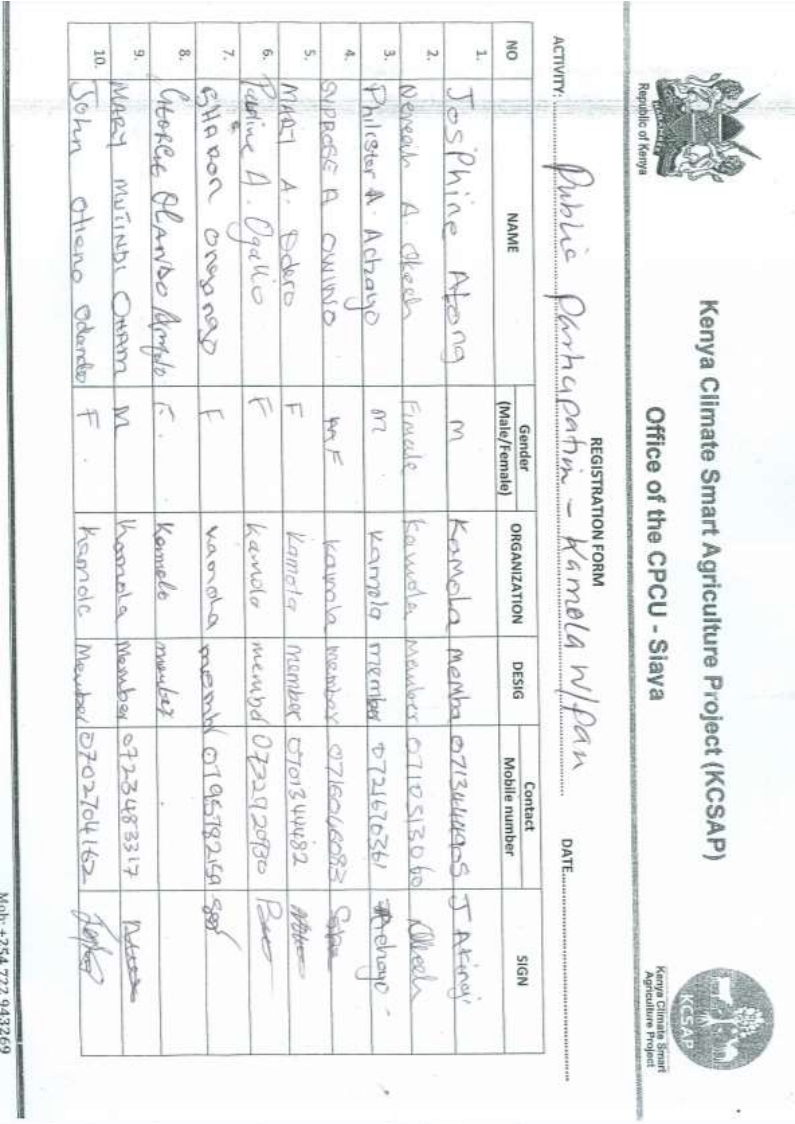 Republic of Kenya
Kenya Climate Smart Agriculture Project (KCSAP)
Office of the CPCU - Siaya
KCSAP
Kenya Climate Smart
Agriculture Project
REGISTRATION FORM
ACTIVITY: Public Participation - Kamola W/pan DATE
NO NAME Gender (Male/Female) ORGANIZATION DESIG Contact Mobile number SIGN
1. Josphine Atong M Kamola Memba 0713444905 J Akinyi
2. Nereah A. Okech Female Kamola Member 0710513060 Okech
3. Philister A. Achayo M Kamola member 0721670361 Achayo
4. SYPROSE A OWINO F Kamola member 0716046093
5. MARY A. Odero F Kamola member 0701344482
6. Pauline A. Ogallo F Kamola membd 0722920930
7. SHARON Onyango F Kamola membr 0795782159
8. GEORGE OLANDO F. Kamolo member
9. MARY MUTINDI OTHAM M Kamola Member 0723483317
10. John Otieno Odendo F. Kamola Member 0702704162
Mob: +254 722 943269